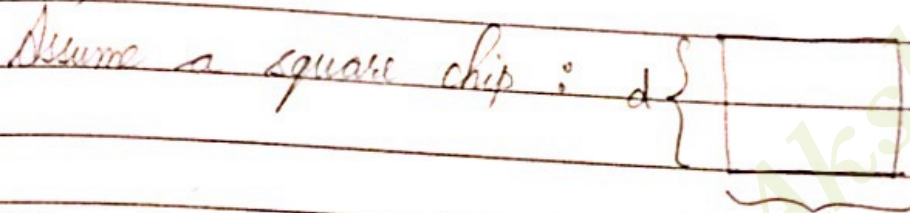 Assume a square chip : d
Aks